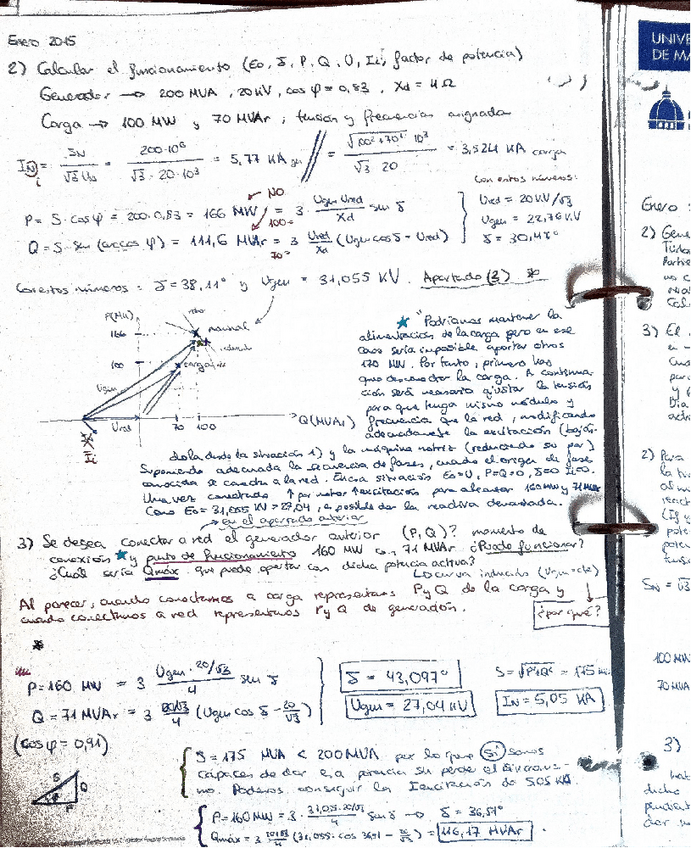 Enero 2015
2) Calcular el funcionamiento (Eo, δ, P, Q, U, Ii, factor de potencia)
Generador → 200 MVA, 20kV, cos φ = 0,83, Xd = 4 Ω
Carga → 100 MW y 70 MVAr; tensión y frecuencia asignada
IN = SN / √3 UN = 200·10⁶ / √3·20·10³ = 5,77 KA gen // = √100²+70² 10³ / √3 20 = 3,524 KA carga
NO
Con estos números:
P = S·cos φ = 200·0,83 = 166 MW / 100 = 3 Ugen Ured / Xd sen δ
Ured = 20kV/√3
Q = S·sen(arccos φ) = 111,6 MVAr 70 = 3 Ured / Xd (Ugen cos δ - Ured)
Ugen = 22,76 kV
δ = 30,48°
Con estos números = δ = 38,11° y Ugen = 31,055 KV. Apartado (3) *
P(MW)
166
nominal
100
carga
Ugen
Ured
70 100
Q(MVAr)
★ "Podríamos mantener la
alimentación de la carga pero en ese
caso sería imposible aportar otros
170 MW. Por tanto, primero hay
que desconectar la carga. A continua-
ción será necesario ajustar la tensión
para que tenga mismo módulo y
frecuencia que la red, modificando
adecuadamente la excitación (baján-
dola desde la situación 1) y la máquina motriz (reduciendo su par)
Suponiendo adecuada la secuencia de fases, cuando el origen de fase
coincida se conecta a la red. En esa situación Eo=U, P=Q=0, δ=0 Ii=0.
Una vez conectado ↑ par motor ↑ excitación para alcanzar 160MW y 71MVAr
Como Eo = 31,055 kV > 27,04, es posible dar la reactiva demandada.
→ en el apartado anterior
3) Se desea conectar a red el generador anterior (P, Q)? momento de
conexión ★ y punto de funcionamiento 160 MW con 71 MVAr ¿Puede funcionar?
¿Cuál sería Qmáx que puede aportar con dicha potencia activa?
LD curva inducido (Ugen = cte)
Al parecer, cuando conectamos a carga representamos P y Q de la carga y
cuando conectamos a red representamos P y Q de generador.
¿por qué?
*
P = 160 MW = 3 Ugen·20/√3 / 4 sen δ
δ = 43,097°
S = √P²+Q² = 175
Q = 71 MVAr = 3 20/√3 / 4 (Ugen cos δ - 20/√3)
Ugen = 27,04 kV
IN = 5,05 KA
(cos φ = 0,91)
S
Q
φ
P
S = 175 MVA < 200 MVA por lo que Sí somos
capaces de dar esa potencia sin perder el sincronis-
mo. Podemos conseguir la Iexcitación de 5,05 KA
P = 160 MW = 3 · 31,055·20/√3 / 4 sen δ → δ = 36,51°
Qmáx = 3 20/√3 / 4 (31,055·cos 36,51 - 20/√3) = 116,17 MVAr.
UNIVE
DE MA
Enero
2) Gene
3) El
2) Para
SN = √3
100 MW
70 MVAr
3)
dicho